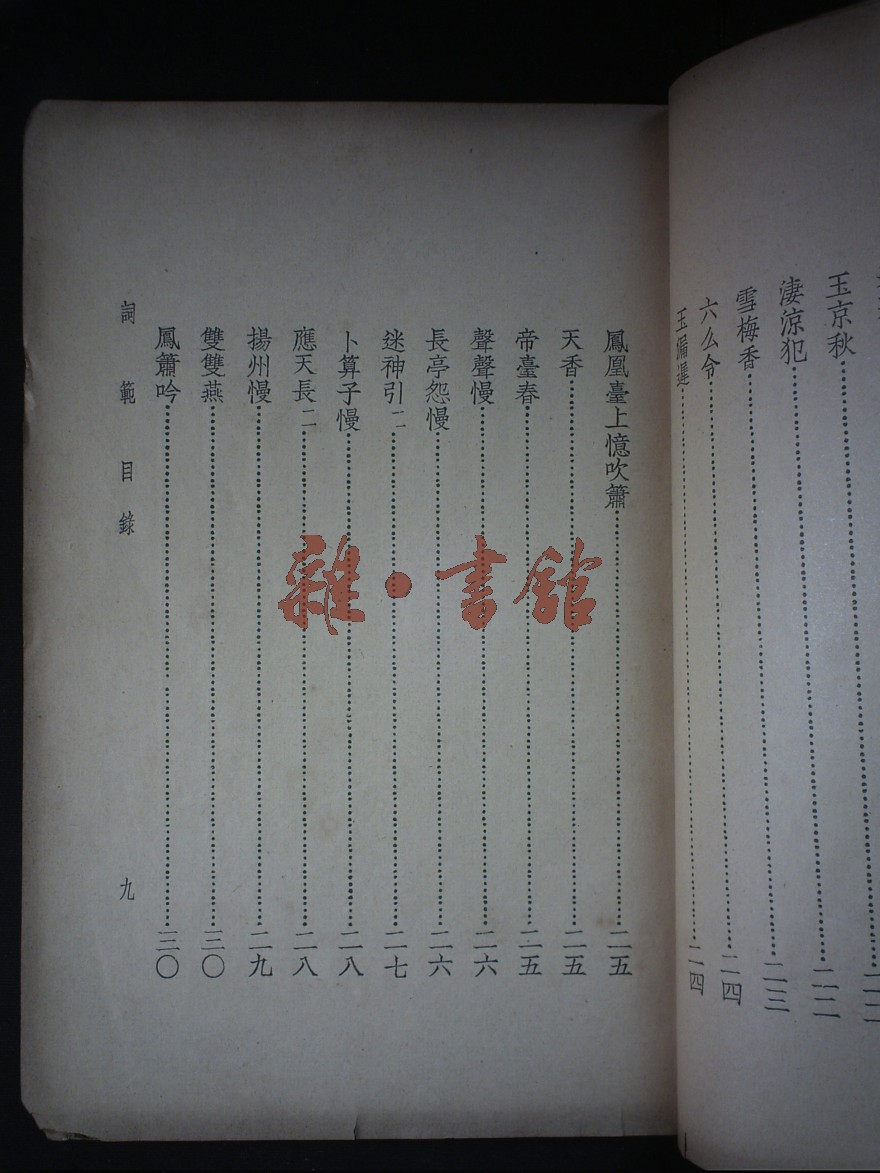 玉京秋……二二
淒涼犯……二三
雪梅香……二四
六么令……二四
玉漏遲……二四
鳳凰臺上憶吹簫……二五
天香……二五
帝臺春……二五
聲聲慢……二六
長亭怨慢……二六
迷神引二……二七
卜算子慢……二八
應天長二……二八
揚州慢……二九
雙雙燕……三〇
鳳簫吟……三〇
詞範目錄 九
雜·書館